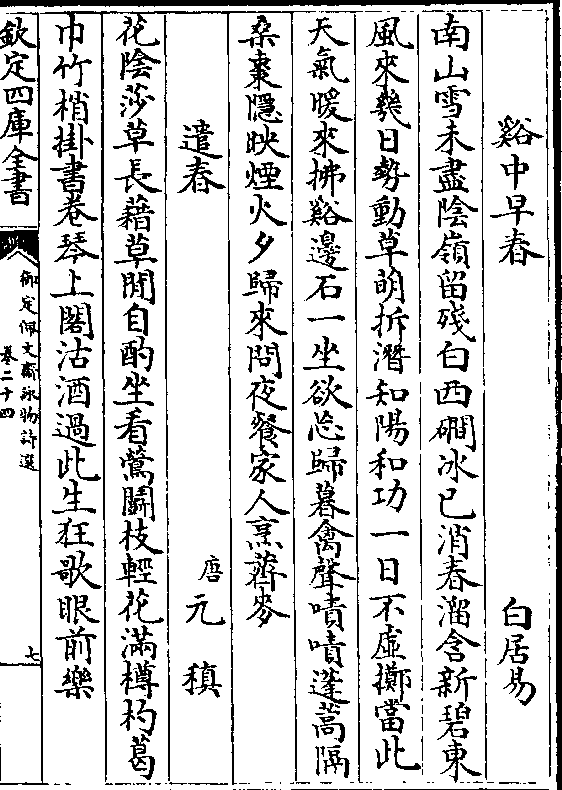 谿中早春 白居易
南山雪未盡陰嶺留殘白西磵冰已消春溜含新碧東
風來幾日勢動草萌拆潛知陽和功一日不虛擲當此
天氣暖來拂谿邊石一坐欲忘歸暮禽聲嘖嘖蓬蒿隔
桑棗隱映煙火夕歸來問夜餐家人烹薺麥
遣春 唐元稹
花陰莎草長藉草閒自酌坐看鶯鬭枝輕花滿樽杓葛
巾竹梢掛書卷琴上閣沽酒過此生狂歌眼前樂
欽定四庫全書
御定佩文齋詠物詩選
卷二十四
七